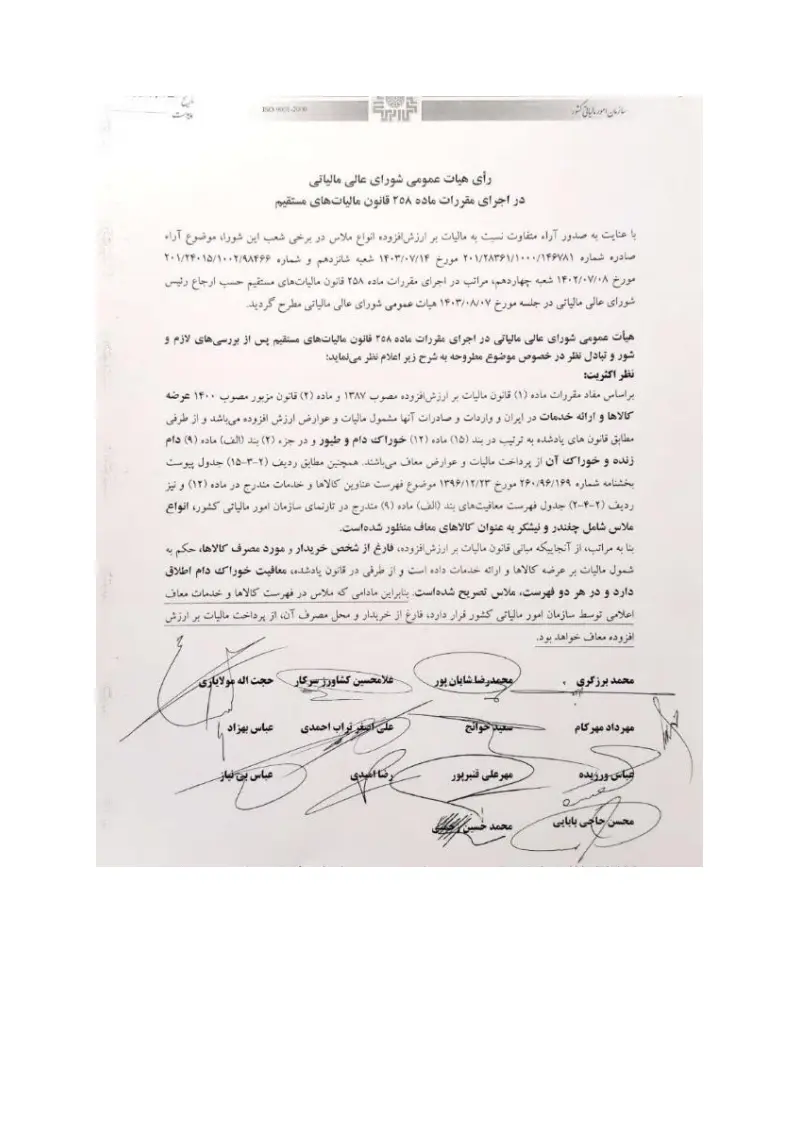 تاریخ
پیوست
ISO-900X-2000
سازمان امور مالیاتی کشور
رأی هیات عمومی شورای عالی مالیاتی
در اجرای مقررات ماده ۲۵۸ قانون مالیات‌های مستقیم
با عنایت به صدور آراء متفاوت نسبت به مالیات بر ارزش‌افزوده انواع ملاس در برخی شعب این شورا، موضوع آراء
صادره شماره ۲۰۱/۲۸۳۶۱/۱۰۰۰/۱۴۶۷۸۱ مورخ ۱۴۰۳/۰۷/۱۴ شعبه شانزدهم و شماره ۲۰۱/۲۴۰۱۵/۱۰۰۲/۹۸۴۶۶
مورخ ۱۴۰۲/۰۷/۰۸ شعبه چهاردهم، مراتب در اجرای مقررات ماده ۲۵۸ قانون مالیات‌های مستقیم حسب ارجاع رئیس
شورای عالی مالیاتی در جلسه مورخ ۱۴۰۳/۰۸/۰۷ هیات عمومی شورای عالی مالیاتی مطرح گردید.
هیأت عمومی شورای عالی مالیاتی در اجرای مقررات ماده ۲۵۸ قانون مالیات‌های مستقیم پس از بررسی‌های لازم و
شور و تبادل نظر در خصوص موضوع مطروحه به شرح زیر اعلام نظر می‌نماید:
نظر اکثریت:
براساس مفاد مقررات ماده (۱) قانون مالیات بر ارزش‌افزوده مصوب ۱۳۸۷ و ماده (۲) قانون مزبور مصوب ۱۴۰۰ عرضه
کالاها و ارائه خدمات در ایران و واردات و صادرات آنها مشمول مالیات و عوارض ارزش افزوده می‌باشد و از طرفی
مطابق قانون های یادشده به ترتیب در بند (۱۵) ماده (۱۲) خوراک دام و طیور و در جزء (۲) بند (الف) ماده (۹) دام
زنده و خوراک آن از پرداخت مالیات و عوارض معاف می‌باشند. همچنین مطابق ردیف (۲-۳-۱۵) جدول پیوست
بخشنامه شماره ۲۶۰/۹۶/۱۶۹ مورخ ۱۳۹۶/۱۲/۲۳ موضوع فهرست عناوین کالاها و خدمات مندرج در ماده (۱۲) و نیز
ردیف (۲-۴-۲) جدول فهرست معافیت‌های بند (الف) ماده (۹) مندرج در تارنمای سازمان امور مالیاتی کشور، انواع
ملاس شامل چغندر و نیشکر به عنوان کالاهای معاف منظور شده‌است.
بنا به مراتب، از آنجاییکه مبانی قانون مالیات بر ارزش‌افزوده، فارغ از شخص خریدار و مورد مصرف کالاها، حکم به
شمول مالیات بر عرضه کالاها و ارائه خدمات داده است و از طرفی در قانون یادشده، معافیت خوراک دام اطلاق
دارد و در هر دو فهرست، ملاس تصریح شده‌است. بنابراین مادامی که ملاس در فهرست کالاها و خدمات معاف
اعلامی توسط سازمان امور مالیاتی کشور قرار دارد، فارغ از خریدار و محل مصرف آن، از پرداخت مالیات بر ارزش
افزوده معاف خواهد بود.
محمد برزگری محمدرضا شایان پور غلامحسین کشاورز سرکار حجت اله مولایاری
مهرداد مهرکام سعید خوانج علی اصغر تراب احمدی عباس بهزاد
عباس ورزیده مهرعلی قنبرپور رضا امیدی عباس بی نیاز
محسن حاجی بابایی محمد حسین